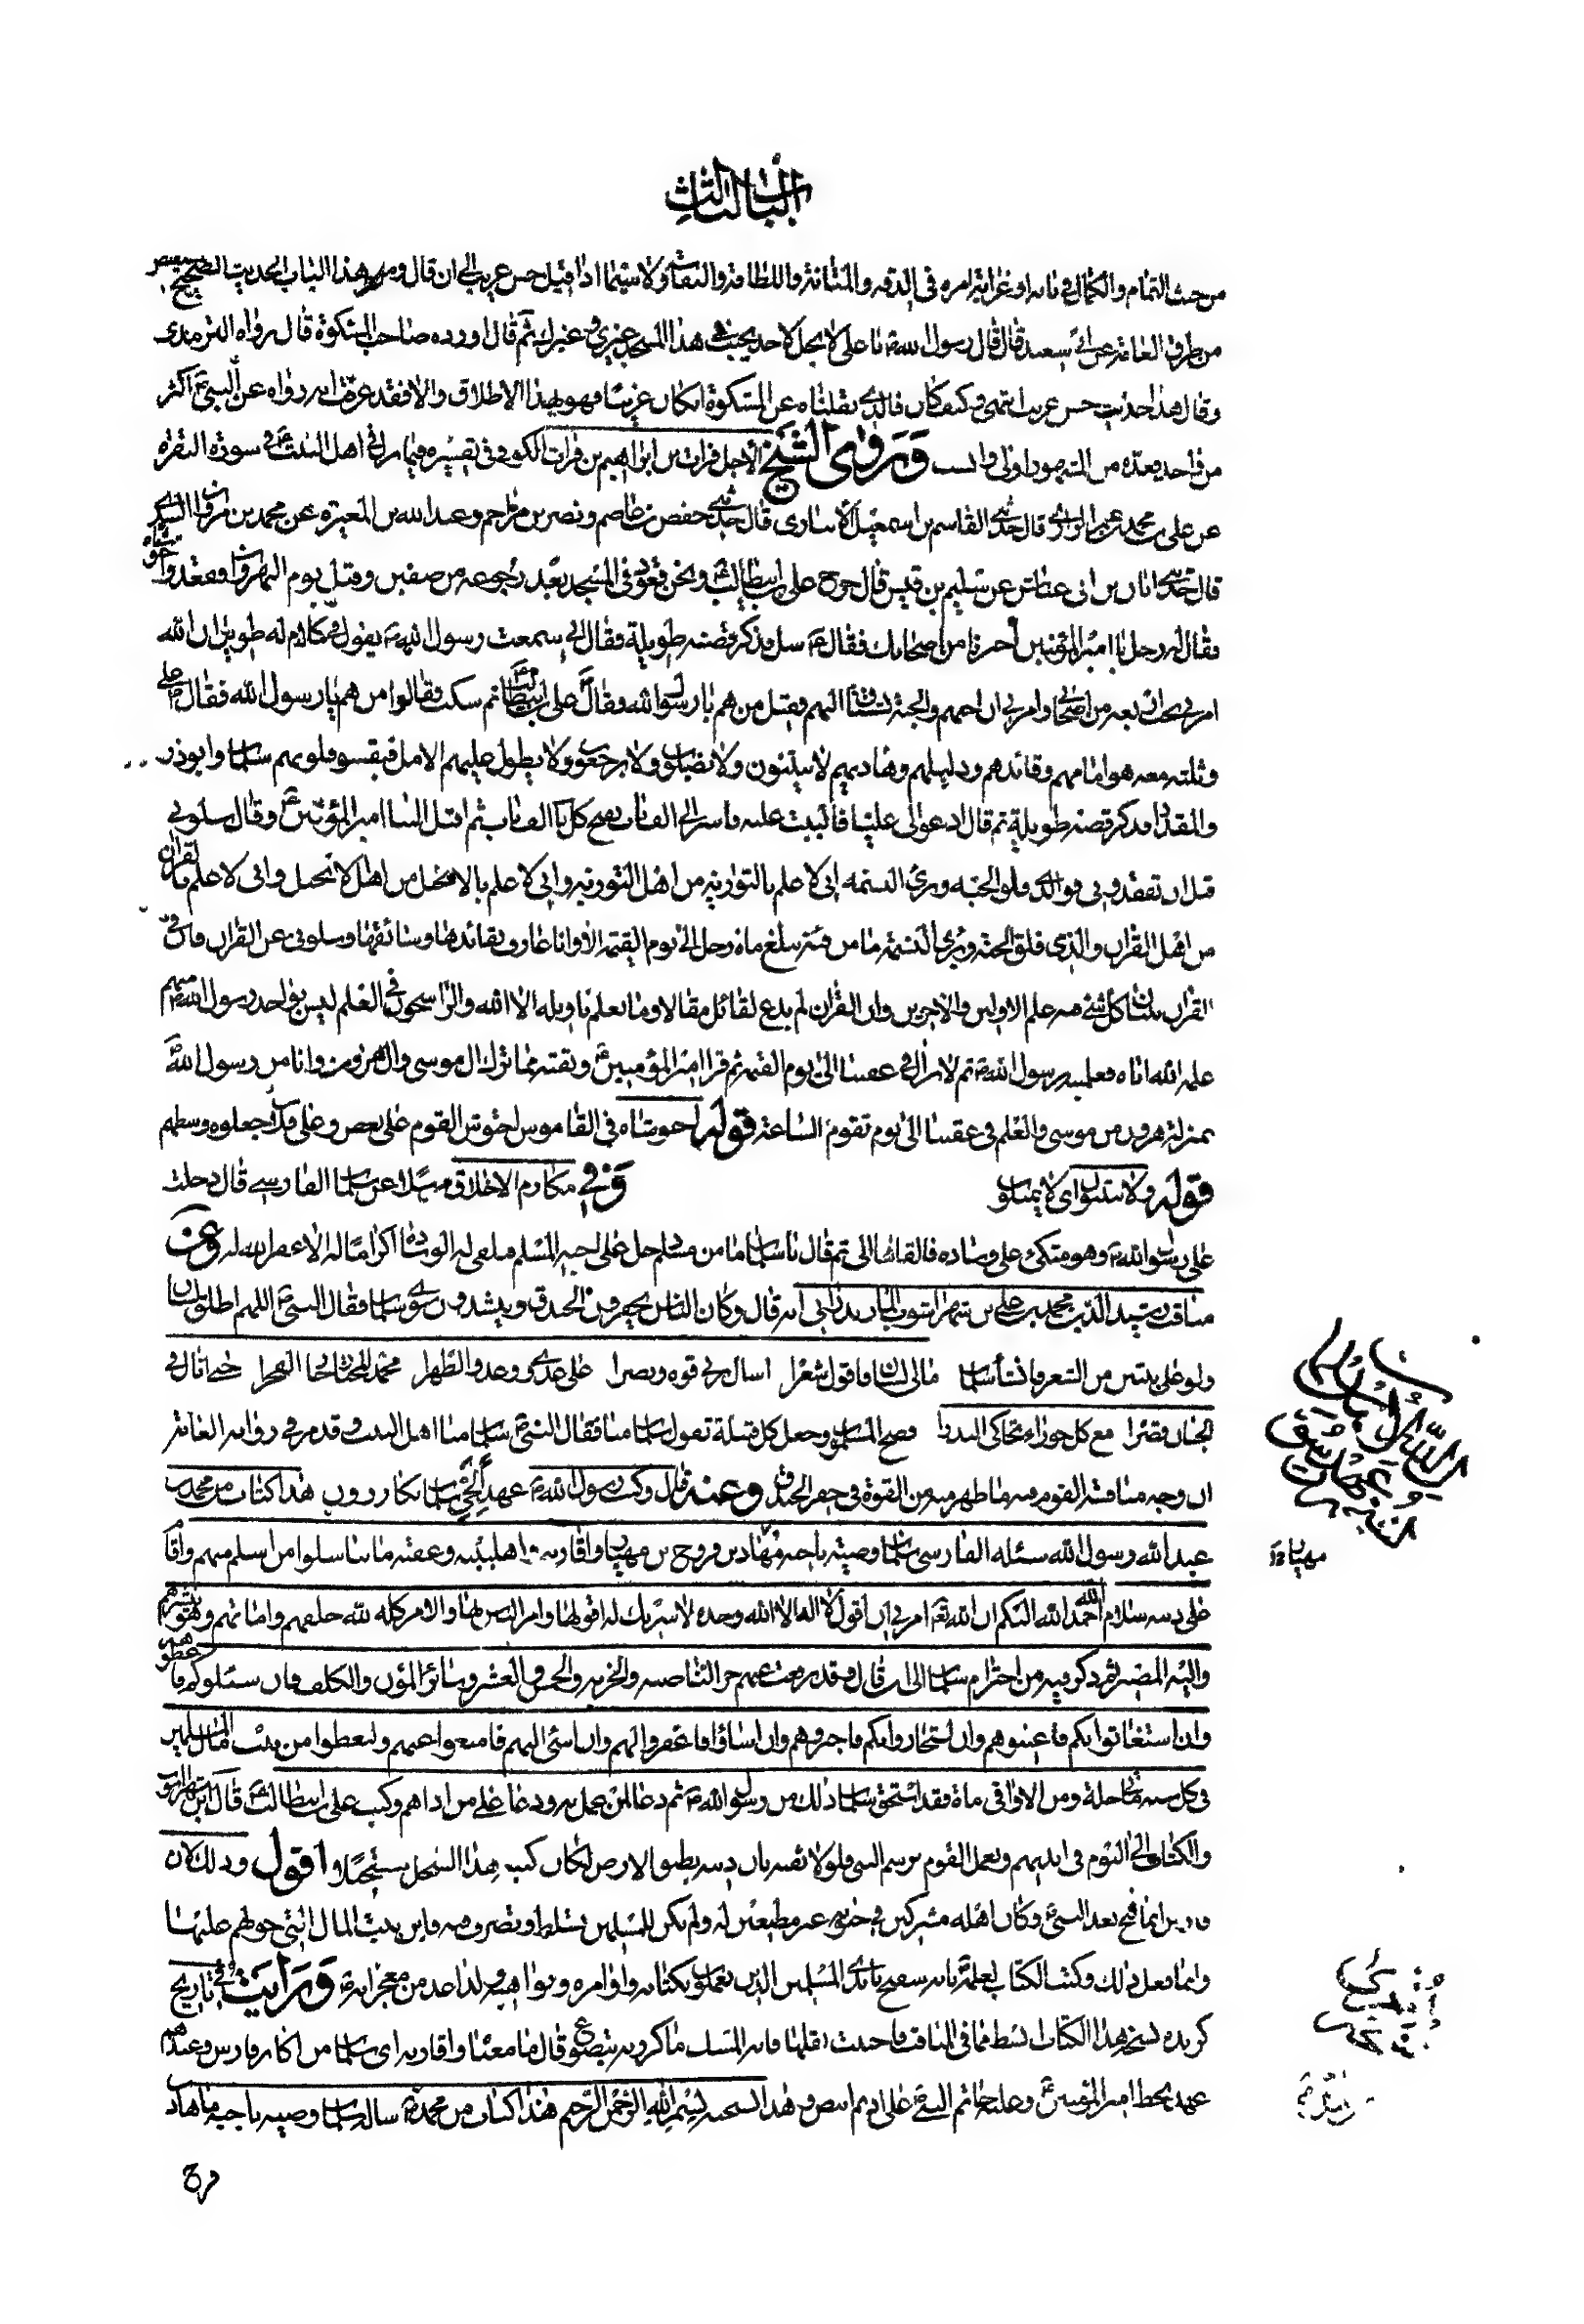 الباب الثالث
من حيث التمام والكمال في بابه او غرابة امره في الدقة والمتانة واللطافة والنفاسة ولا سيما اذا قيل حسن غريب الى ان قال ومن هذا الباب الحديث الصحيح
من طرق العامة عن ابي سعيد قال قال رسول الله يا علي لا يحل لاحد يجنب في هذا المسجد غيري وغيرك ثم قال اورده صاحب المشكوة قال رواه الترمذي
وقال هذا حديث حسن غريب انتهى وكيف كان فالذي نقلناه عن المشكوة ان كان غريبا فهو بهذا الاطلاق والا فقد عرفت انه رواه عن النبي اكثر
من واحد وروى الشيخ الاجل فرات بن ابراهيم بن فرات الكوفي في تفسيره فيما نزل في اهل البيت في سورة البقرة
عن علي بن محمد بن عمر الزهري قال حدثني القاسم بن اسمعيل الانباري قال حدثني حفص بن عاصم ونصر بن مزاحم وعبد الله بن المغيرة عن محمد بن مروان السدي
قال حدثني ابان بن ابي عياش عن سليم بن قيس قال خرج علي بن ابيطالب ونحن قعود في المسجد بعد رجوعه من صفين وقبل يوم النهروان فقعد واحتوشناه
فقال له رجل يا امير المؤمنين اخبرنا من اصحابك فقال سل وذكر قصة طويلة وقال اني سمعت رسول الله يقول في كلام له طويل ان الله
امرني بحب اربعة من اصحابي وامرني ان احبهم والجنة تشتاق اليهم فقيل من هم يا رسول الله فقال علي بن ابيطالب ثم سكت فقالوا من هم يا رسول الله فقال علي
وثلثة معه هو امامهم وقائدهم ودليلهم وهاديهم لا ينثنون ولا يضلون ولا يرجعون ولا يطول عليهم الامد فتقسو قلوبهم سلمان وابوذر
والمقداد وذكر قصة طويلة ثم قال ادعوا لي عليا فاكببت عليه فاسر الي الف باب يفتح كل باب الف باب ثم اقبل الينا امير المؤمنين وقال سلوني
قبل ان تفقدوني فوالذي فلق الحبة وبرئ النسمة اني لاعلم بالتورية من اهل التورية واني لاعلم بالانجيل من اهل الانجيل واني لاعلم بالقران
من اهل القران والذي فلق الحبة وبرئ النسمة ما من فئة تبلغ مائة رجل الى يوم القيمة الا وانا عارف بقائدها وسائقها وسلوني عن القران فان في
القران بيان كل شئ فيه علم الاولين والاخرين وان القران لم يدع لقائل مقالا وما يعلم تاويله الا الله والراسخون في العلم ليس بواحد رسول الله منهم
علمه الله اياه فعلمنيه رسول الله ثم لا يزال في عقبنا الى يوم القيمة ثم قرا امير المؤمنين وبقية مما ترك ال موسى وال هرون وانا من رسول الله
بمنزلة هرون من موسى والعلم في عقبنا الى يوم تقوم الساعة قوله احتوشناه في القاموس احتوش القوم على بعض وعلى فلان جعلوه وسطهم
قوله ولا ينثنون اي لا يميلون وفي مكارم الاخلاق مرسلا عن سلمان الفارسي قال دخلت
على رسول الله وهو متكئ على وسادة فالقاها الي ثم قال يا سلمان ما من مسلم دخل على اخيه المسلم فيلقي له الوسادة اكراما له الا غفر الله له وعن
مناقب رشيد الدين محمد بن علي بن شهراشوب المازندراني انه قال وكان الناس يحفرون الخندق وينشدون سوى سلمان فقال النبي اللهم اطلق لسان
ولو على بيتين من الشعر فانشأ سلمان مالي لسان فاقول شعرا اسال ربي قوة ونصرا على عدوي وعدو الطهرا محمد المختار حاز الفخرا حتى انال في
الجنان قصرا مع كل حوراء تحاكي البدرا فضج المسلمون وجعل كل قبيلة تقول سلمان منا فقال النبي سلمان منا اهل البيت وقد مر في رواية العامة
ان وجه منافسة القوم فيه ما ظهر منه من القوة في حفر الخندق وعنه قال وكتب رسول الله عهدا لحي سلمان بكازرون هذا كتاب من محمد بن
عبد الله رسول الله سئله الفارسي سلمان وصية باخيه مهاد بن فروخ بن مهيار واقاربه واهل بيته وعقبه ما تناسلوا من اسلم منهم واقام
على دينه سلام الله احمد الله اليكم ان الله تعالى امرني ان اقول لا اله الا الله وحده لا شريك له اقولها وامر الناس بها والامر كله لله خلقهم واماتهم وهو ينشرهم
واليه المصير ثم ذكر فيه من احترام سلمان الى ان قال وقد رفعت عنهم جز الناصية والجزية والخمس والعشر وسائر المؤن والكلف فان سئلوكم فاعطوهم
وان استغاثوا بكم فاغيثوهم وان استجاروا بكم فاجيروهم وان اساؤا فاغفروا لهم وان اسئ اليهم فامنعوا عنهم وليعطوا من بيت مال المسلمين
في كل سنة مائتي حلة ومن الاواقي مائة فقد استحق سلمان ذلك من رسول الله ثم دعا لمن عمل به ودعا على من اذاهم وكتب علي بن ابيطالب قال ابن شهراشوب
والكتاب الى اليوم في ايديهم ويعمل القوم برسم النبي فلولا ثقته بان دينه يطبق الارض لكان كتبه هذا السجل مستحيلا اقول وذلك لان
فارس انما فتح بعد النبي وكان اهله مشركين في حيوته غير مطيعين له ولم يكن للمسلمين تسلط وتصرف فيه واين بيت المال التي حولهم عليها
وانما فعل ذلك وكتب الكتاب لعلمه بانه سيفتح بايدي المسلمين الذين يعملون بكتابه واوامره ونواهيه وهذا احد من معجزاته ورايت في تاريخ
كزيده نسخة هذا الكتاب ابسط مما في المناقب فاحببت نقلها
عهد بخط امير المؤمنين وعليه خاتم النبي على اديم ابيض وهذا نسخته بسم الله الرحمن الرحيم هذا كتاب من محمد رسول الله ساله سلمان وصية باخيه ماهاد
مهيار